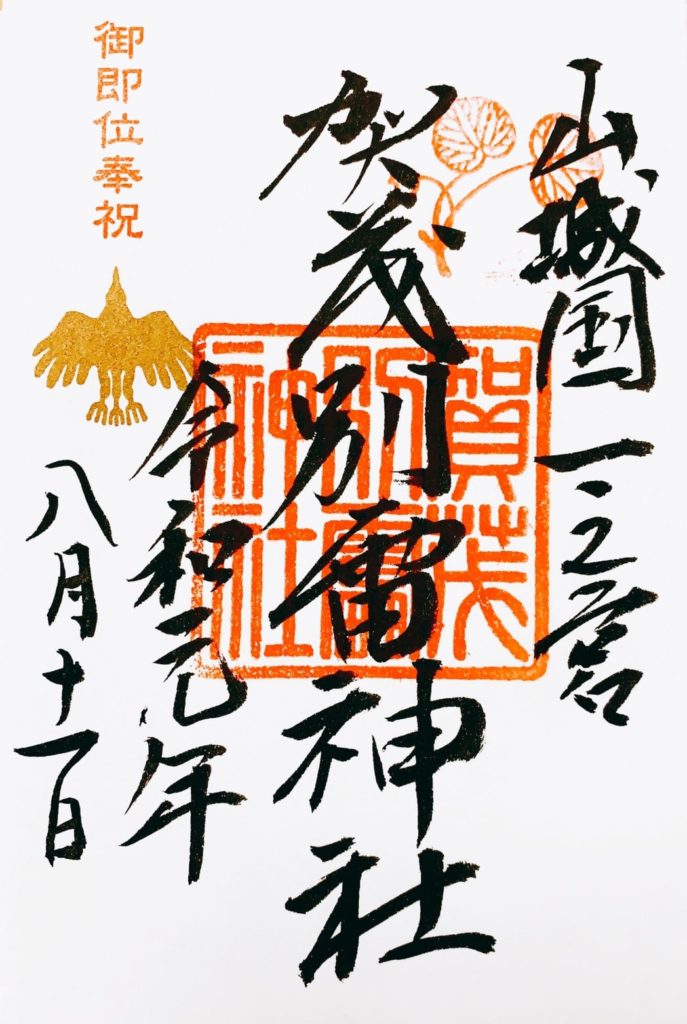 山城国一之宮
賀茂別雷神社
賀茂
別雷
神社
令和元年
八月十一日
御即位奉祝